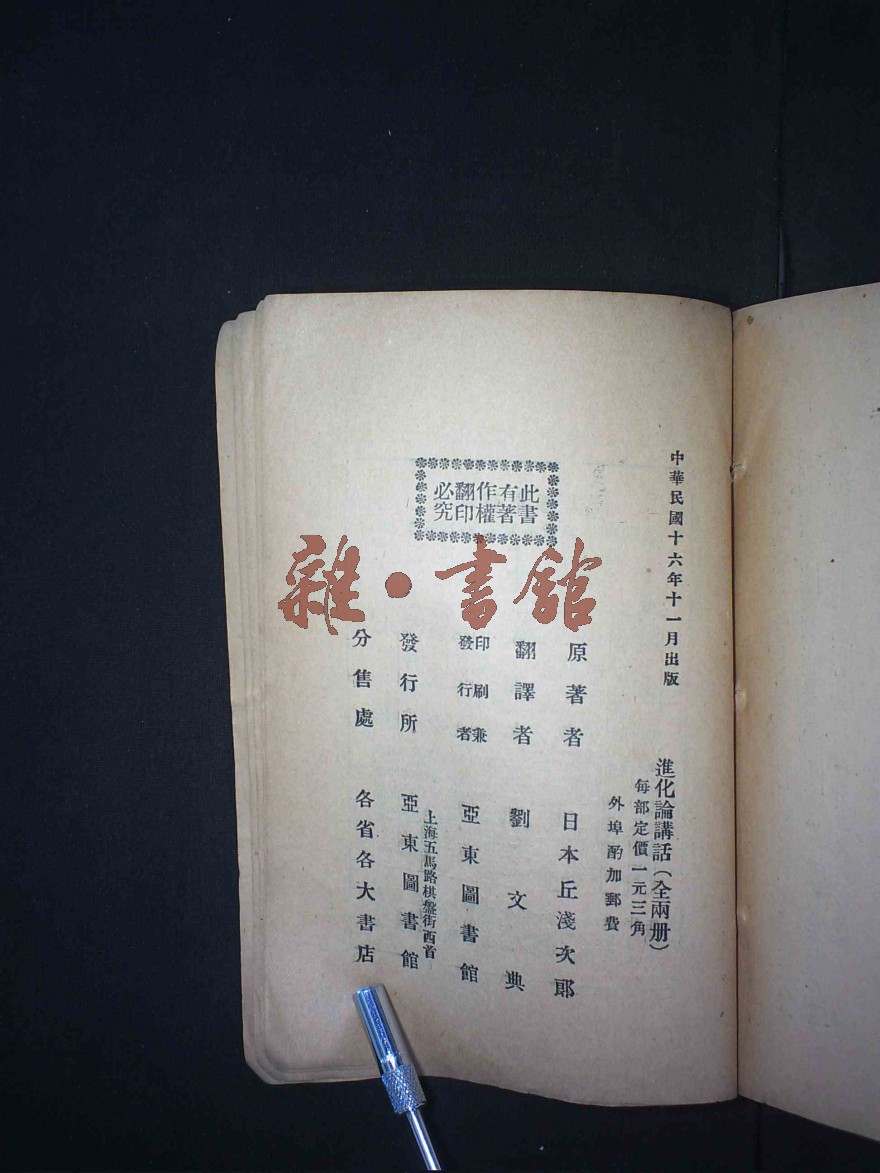 中華民國十六年十一月出版
進化論講話（全兩册）
每部定價一元三角
外埠酌加郵費
此書有著作權翻印必究
原著者 日本丘淺次郎
翻譯者 劉文典
印刷兼發行者 亞東圖書館
上海五馬路棋盤街西首
發行所 亞東圖書館
分售處 各省各大書店
雜·書館